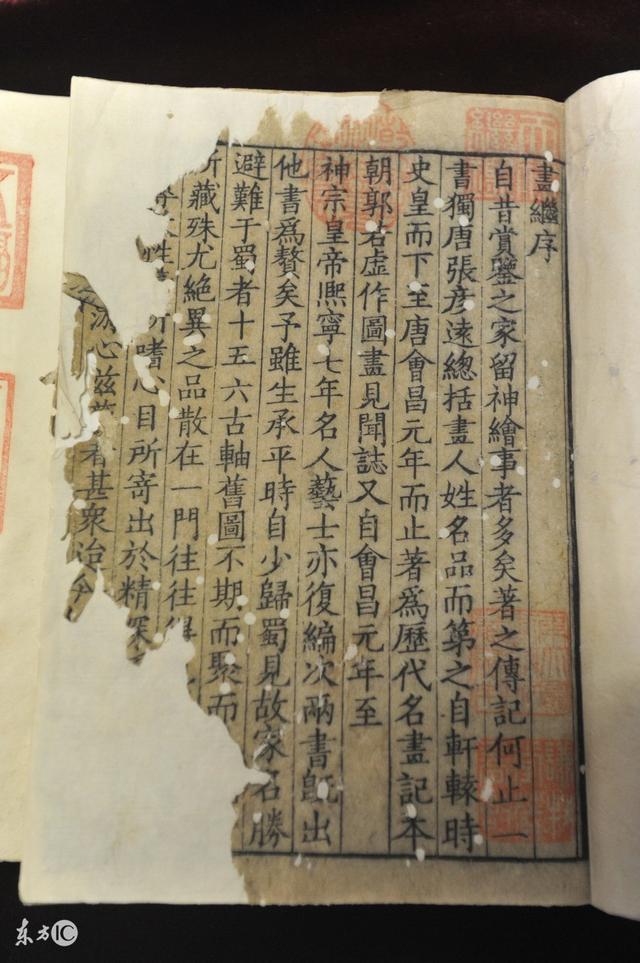 畫繼序
自昔賞鑒之家留神繪事者多矣著之傳記何止一
書獨唐張彥遠總括畫人姓名品而第之自軒轅時
史皇而下至唐會昌元年而止著爲歷代名畫記本
朝郭若虛作圖畫見聞誌又自會昌元年至
神宗皇帝熈寧七年名人藝士亦復編次兩書旣出
他書爲贅矣予雖生承平時自少歸蜀見故家名勝
避難于蜀者十五六古軸舊圖不期而聚而
所藏殊尤絶異之品散在一門往往得
性 所嗜心目所寄出於精深
游心兹藝者甚衆迨今
东方IC